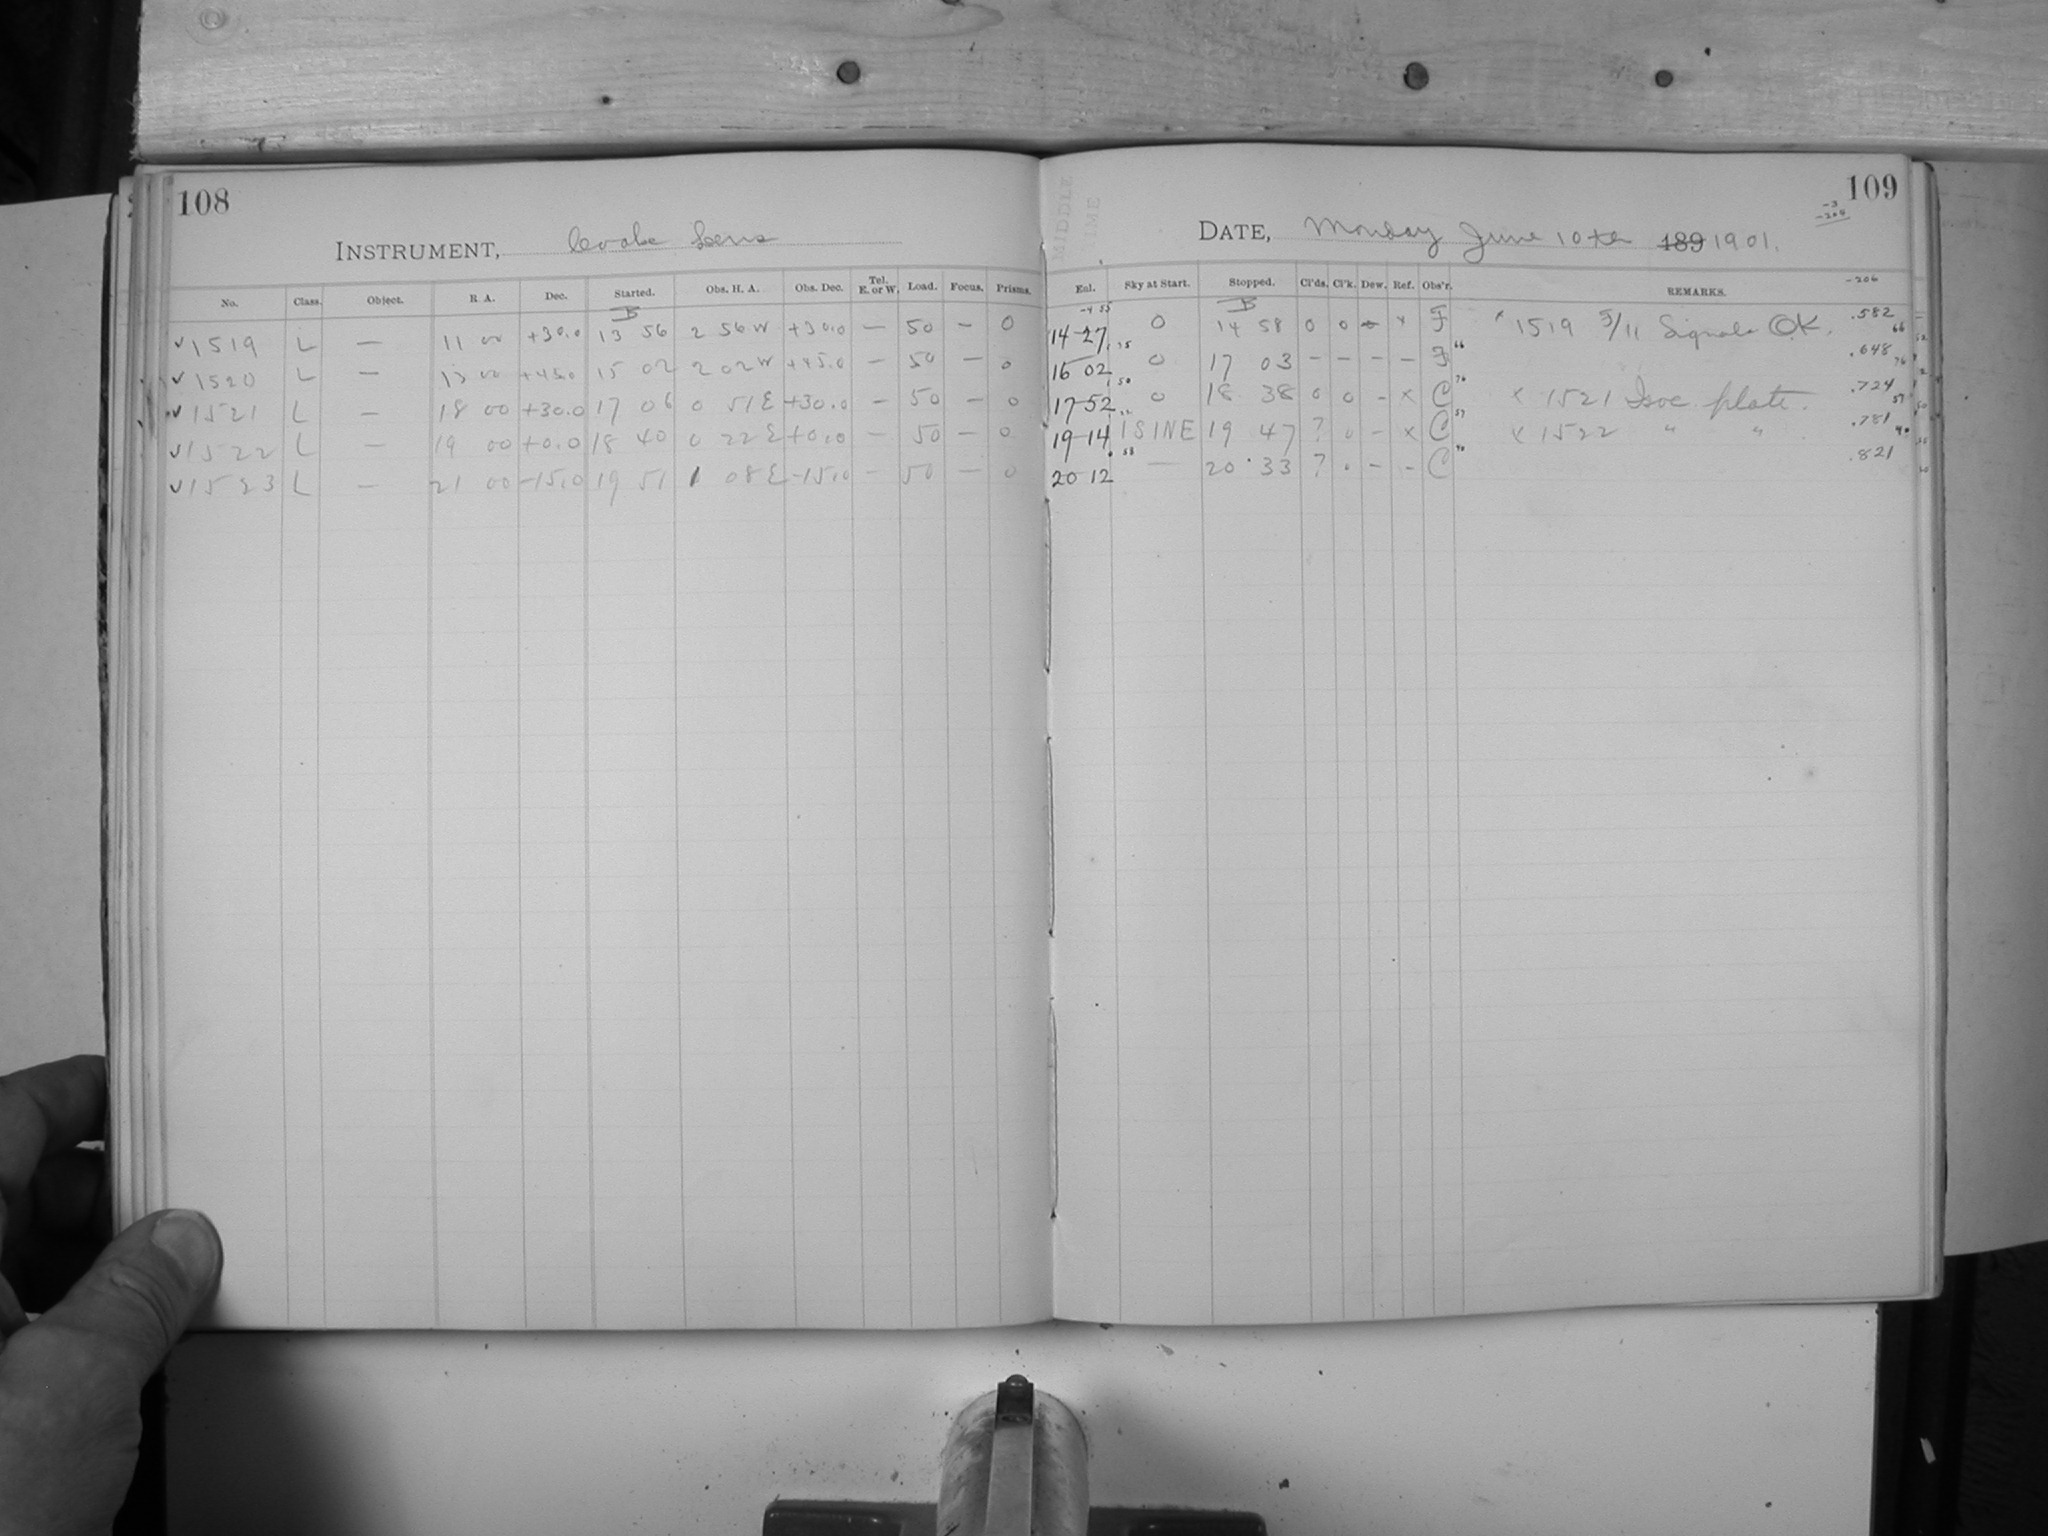 108
INSTRUMENT, Cooke Lens
No. Class. Object. R A. Dec. Started. Obs. H. A. Obs. Dec. Tel. E. or W. Load. Focus. Prisms.
B
√1519 L — 11 00 +30.0 13 56 2 56 W +30.0 — 50 — 0
√1520 L — 13 00 +45.0 15 02 2 02 W +45.0 — 50 — 0
√1521 L — 18 00 +30.0 17 06 0 51 E +30.0 — 50 — 0
√1522 L — 19 00 +0.0 18 40 0 22 E +0.0 — 50 — 0
√1523 L — 21 00 -15.0 19 51 1 08 E -15.0 — 50 — 0
109
MIDDLE
TIME
-3
-206
DATE, Monday June 10th 189 1901.
Enl. Sky at Start. Stopped. Cl'ds. Cl'k. Dew. Ref. Obs'r. REMARKS. -206
B
14-27 0 14 58 0 0 - x F x 1519 5/11 Signals OK. .582
66
16 02 0 17 03 - - - - F .648
76
17-52 0 18 38 0 0 - x C x 1521 Isoc plate. .724
57
19-14 ISINE 19 47 ? 0 - x C x 1522 " " .781
40
20 12 — 20 33 ? 0 - - C .821